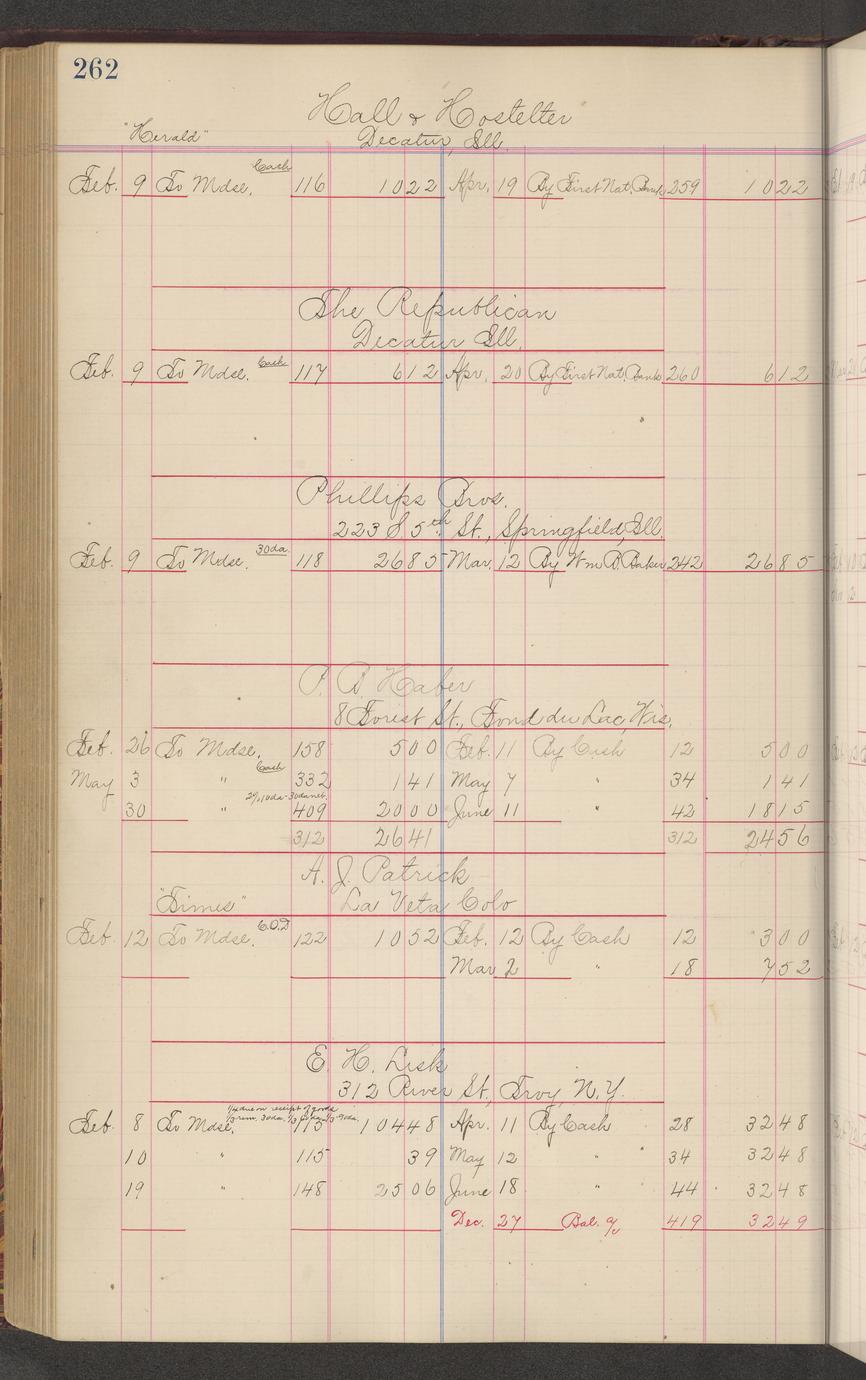 262
Hall & Hostelter
"Herald" Decatur, Ill.
Feb. 9 To Mdse. Cash 116 1022 Apr. 19 By First Nat. Bank 259 1022
The Republican
Decatur Ill.
Feb. 9 To Mdse. Cash 117 612 Apr. 20 By First Nat. Bank 260 612
Phillips Bros.
223 S 5th St., Springfield, Ill.
Feb. 9 To Mdse. 30 da. 118 2685 Mar. 12 By Wm B. Baker 242 2685
P. B. Haber
8 Forest St., Fond du Lac, Wis.
Feb. 26 To Mdse. 158 500 Feb. 11 By Cash 12 500
May 3 " Cash 332 141 May 7 " 34 141
30 " 2% 10 da - 30 da net. 409 2000 June 11 " 42 1815
312 2641 312 2456
A. J. Patrick
"Times" La Veta Colo
Feb. 12 To Mdse. C.O.D 122 1052 Feb. 12 By Cash 12 300
Mar 2 " 18 752
E. H. Lisk
312 River St., Troy, N.Y.
1/4 due on receipt of goods
Feb. 8 To Mdse. 115 10448 Apr. 11 By Cash 28 3248
10 " 115 39 May 12 " 34 3248
19 " 148 2506 June 18 " 44 3248
Dec. 27 Bal. a/c 419 3249